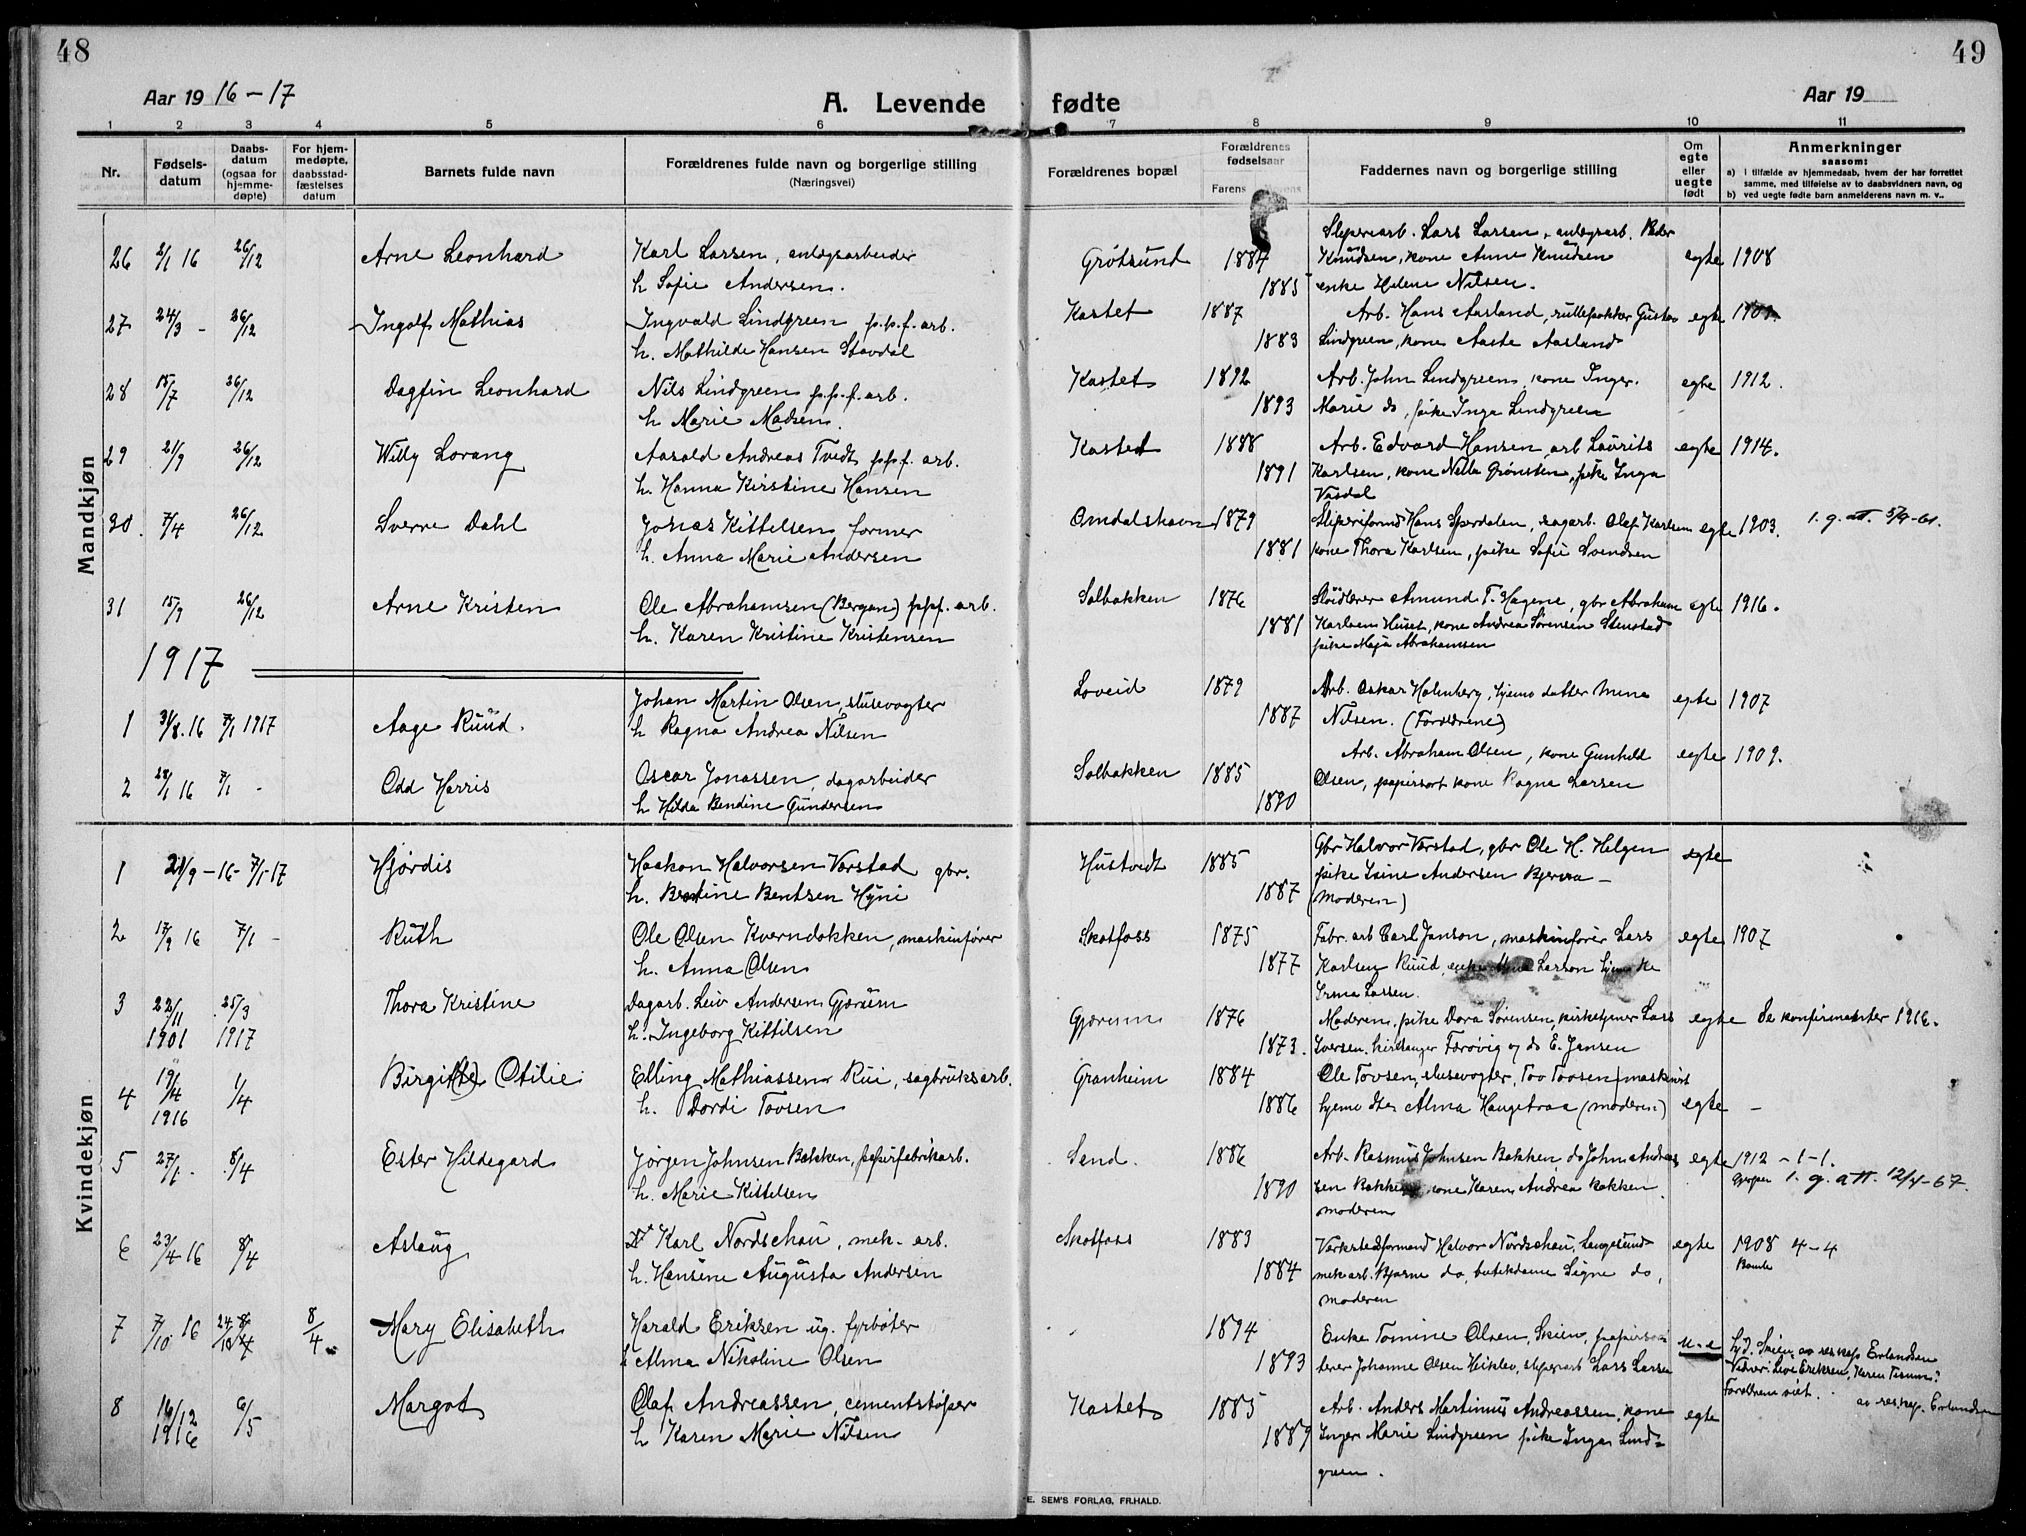 48
49
Aar 1916-17
A. Levende fødte
Aar 19
1 2 3 4 5 6 7 8 9 10 11
Nr.
Fødsels-
datum
Daabs-
datum
(ogsaa for
hjemme-
døpte)
For hjem-
medøpte,
daabsstad-
fæstelses
datum
Barnets fulde navn
Forældrenes fulde navn og borgerlige stilling
(Næringsvei)
Forældrenes bopæl
Forældrenes
fødselsaar
Farens
Faddernes navn og borgerlige stilling
Om
egte
eller
uegte
født
Anmerkninger
saasom:
a) i tilfælde av hjemmedaab, hvem der har forrettet
samme, med tilføielse av to daabsvidners navn, og
b) ved uegte fødte barn anmelderens navn m. v..
Mandkjøn
26 2/1 16 26/12 Arne Leonhard
Karl Larsen, anlægsarbeider
h. Sofie Andersen.
Grøtsund 1884 1885
Sliperiarb. Lars Larsen, anlægsarb. Peder
Knudsen, kone Anne Knudsen
enke Helene Nilsen.
egte 1908
27 24/3 - 26/12 Ingolf Mathias
Ingvald Lindgreen p.p.f. arb.
h. Mathilde Hansen Stavdal
Kastet 1887 1883
Arb. Hans Aasland, rullepakker Gustav
Lindgreen, kone Aaste Aasland
egte
28 15/7 26/12 Dagfin Leonhard
Nils Lindgreen p.p.f. arb.
h. Marie Madsen.
Kastet 1892 1893
Arb. John Lindgreen, kone Inger
Marie do, pike Inga Lindgreen
egte 1912.
29 21/9 26/12 Willy Lorang
Aasold Andreas Tvedt p.p.f. arb.
h. Hanna Kirstine Hansen
Kasted 1888 1891
Arb. Edvard Hansen, arb Laurits
Karlsen, kone Nella Grønsten, pike Inga
Vasdal
egte 1914.
30. 7/4 26/12 Sverre Dahl
Jonas Kittelsen former
h. Anna Marie Andersen
Omdalshavn 1879 1881
Sliperiformd Hans Sperdalen, sagarb. Olaf Karlsen
kone Thora Karlsen, pike Sofie Svendsen
egte 1903. 1. g. att. 5/9-61.
31 15/9 26/12 Arne Kristen
Ole Abrahamsen (Bergan) p.p.f. arb.
h. Karen Kristine Kristensen
Solbakken 1876 1881
Sløidlærer Amund T. Hagene, gbr Abraham
Karlsen Huset, kone Andrea Sørensen Stenstad
pike Maja Abrahamsen
egte 1916.
1917
1 31/8.16 7/1 1917 Aage Ruud.
Johan Martin Olsen, slusevogter
h Ragna Andrea Nilsen
Løveid 1879 1887
Arb. Oskar Holmberg, hjemv datter Mina
Nilsen. (Forældrene)
egte 1907
2 28/1 16 7/1 - Odd Harris
Oscar Jonassen, dagarbeider
h Hilda Bendine Gundersen
Solbakken 1885 1890
Arb. Abraham Olsen, kone Gunhild
Olsen, papirsort kone Ragna Larsen
egte 1909.
Kvindekjøn
1 21/9 -16- 7/1-17 Hjørdis
Haakon Halvorsen Værstad gbr.
h. Bertine Bentsen Hyni
Hustvedt 1885 1887
Gbr Halvor Værstad, gbr Ole H. Helgen
pike Isine Andersen Bjerva -
(moderen)
egte
2 17/9 16 7/1 - Ruth
Ole Olsen Kverndokken, maskinfører
h. Anna Olsen
Skotfoss 1875 1877
Fabr. arb Carl Janson, maskinfører Lars
Karlsen Ruud, Larson hjemv ke
Irma Larsen.
egte 1907
3 22/11 1901 25/3 1917 Thora Kristine
Dagarb. Leiv Andersen Gjærum
h. Ingeborg Kittilsen
Gjærum 1876 1873.
Moderen, pike Dora Sørensen, kirketjener Lars
Iversen, kirkesanger Færøvig og do E. Jansen
egte Se konfirmanter 1916.
4 19/4 1916 1/4 Birgit(te) Otilie
Elling Mathiassen Rui, sagbruksarb.
h. Dordi Tovsen
Granheim 1884 1886
Ole Tovsen, slusevogter, Tov Tovsen, maskinist
hjemv dtr Alma Haugetraa (moderen)
egte -
5 27/1. 8/4 Ester Hildegard
Jørgen Johnsen Bakken, papirfabrikarb.
h. Marie Kittelsen
Sand. 1886 1890
Arb. Rasmus Johnsen Bakken, do John Andreas
sen Bakken, kone Karen Andrea Bakken
moderen
egte 1912 - 1-1.
Gjerpen 1. g. att. 12/4-67.
6 23/4 16 8/4 Aslaug
Karl Nordschau, mek. arb.
h. Hansine Augusta Andersen
Skotfoss 1883 1884
Værkstedformand Halvor Nordschau, Langesund
mek arb. Bjarne do, butikdame Signe do,
moderen
egte 1908 4-4
Bamle
7 7/10 16 24/10 8/4 8/4 Mary Elisabeth
Harald Eriksen ug. fyrbøter
h Alma Nikoline Olsen
1894 1893
Enke Tomine Olsen, Skien, papirsor
terer Johanne Olsen Heiklev, sliperiarb Lars Larsen
u.e Hjd. Skien av reskap Erlandsen
Vidner: Live Eriksen, Karen
Forældrene viet.
av reskap. Erlandsen
8 16/12 1916 6/5 Margot
Olaf Andreassen, cementstøper
h Karen Marie Nilsen
Kastet 1885 1889
Arb. Anders Martinius Andreassen, kone
Inger Marie Lindgreen pike Inga Lind-
green.
egte
E. SEM'S FORLAG, FR.HALD.